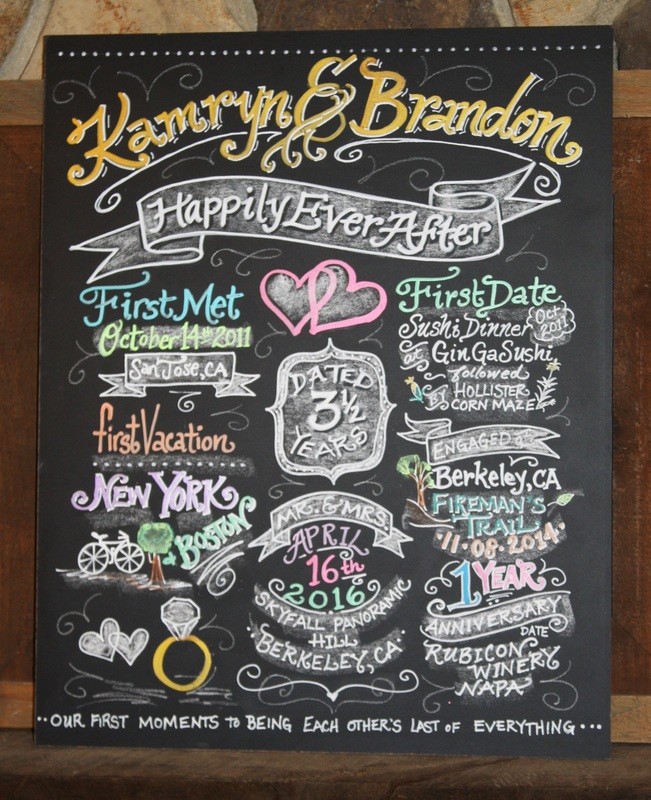 Kamryn & Brandon
Happily Ever After
First Met
October 14th 2011
San Jose, CA
first Vacation
NEW YORK
& BOSTON
DATED
3 1/2
YEARS
MR. & MRS.
APRIL
16th
2016
SKYFALL PANORAMIC
HILL
BERKELEY, CA
First Date
Sushi Dinner
Oct
2011
at Gin Ga Sushi,
followed
BY HOLLISTER
CORN MAZE
ENGAGED at
Berkeley, CA
FIREMAN'S
TRAIL
11·08·2014
1 YEAR
ANNIVERSARY
DATE
RUBICON
WINERY
NAPA
··OUR FIRST MOMENTS to BEING EACH OTHER'S LAST OF EVERYTHING···